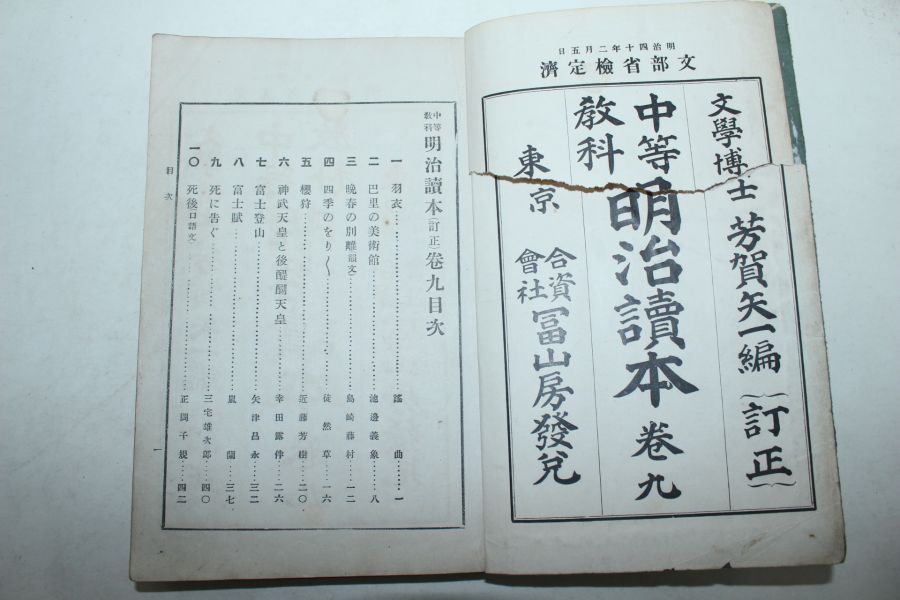 明治四十年二月五日
文部省檢定濟
文學博士 芳賀矢一編(訂正)
中等
敎科
明治讀本 卷九
東京
合資
會社
冨山房發兌
中等
敎科
明治讀本(訂正)卷九目次
一 羽衣……謠曲……一
二 巴里の美術館……池邊義象……八
三 晩春の別離(韻文)……島崎藤村……一二
四 四季のをり〱……徒然草……一六
五 櫻狩……近藤芳樹……二〇
六 神武天皇と後醍醐天皇……幸田露伴……二六
七 富士登山……矢津昌永……三二
八 富士賦……嵐蘭……三七
九 死に告ぐ……三宅雄次郎……四〇
一〇 死後(口語文)……正岡子規……四二
目次
一